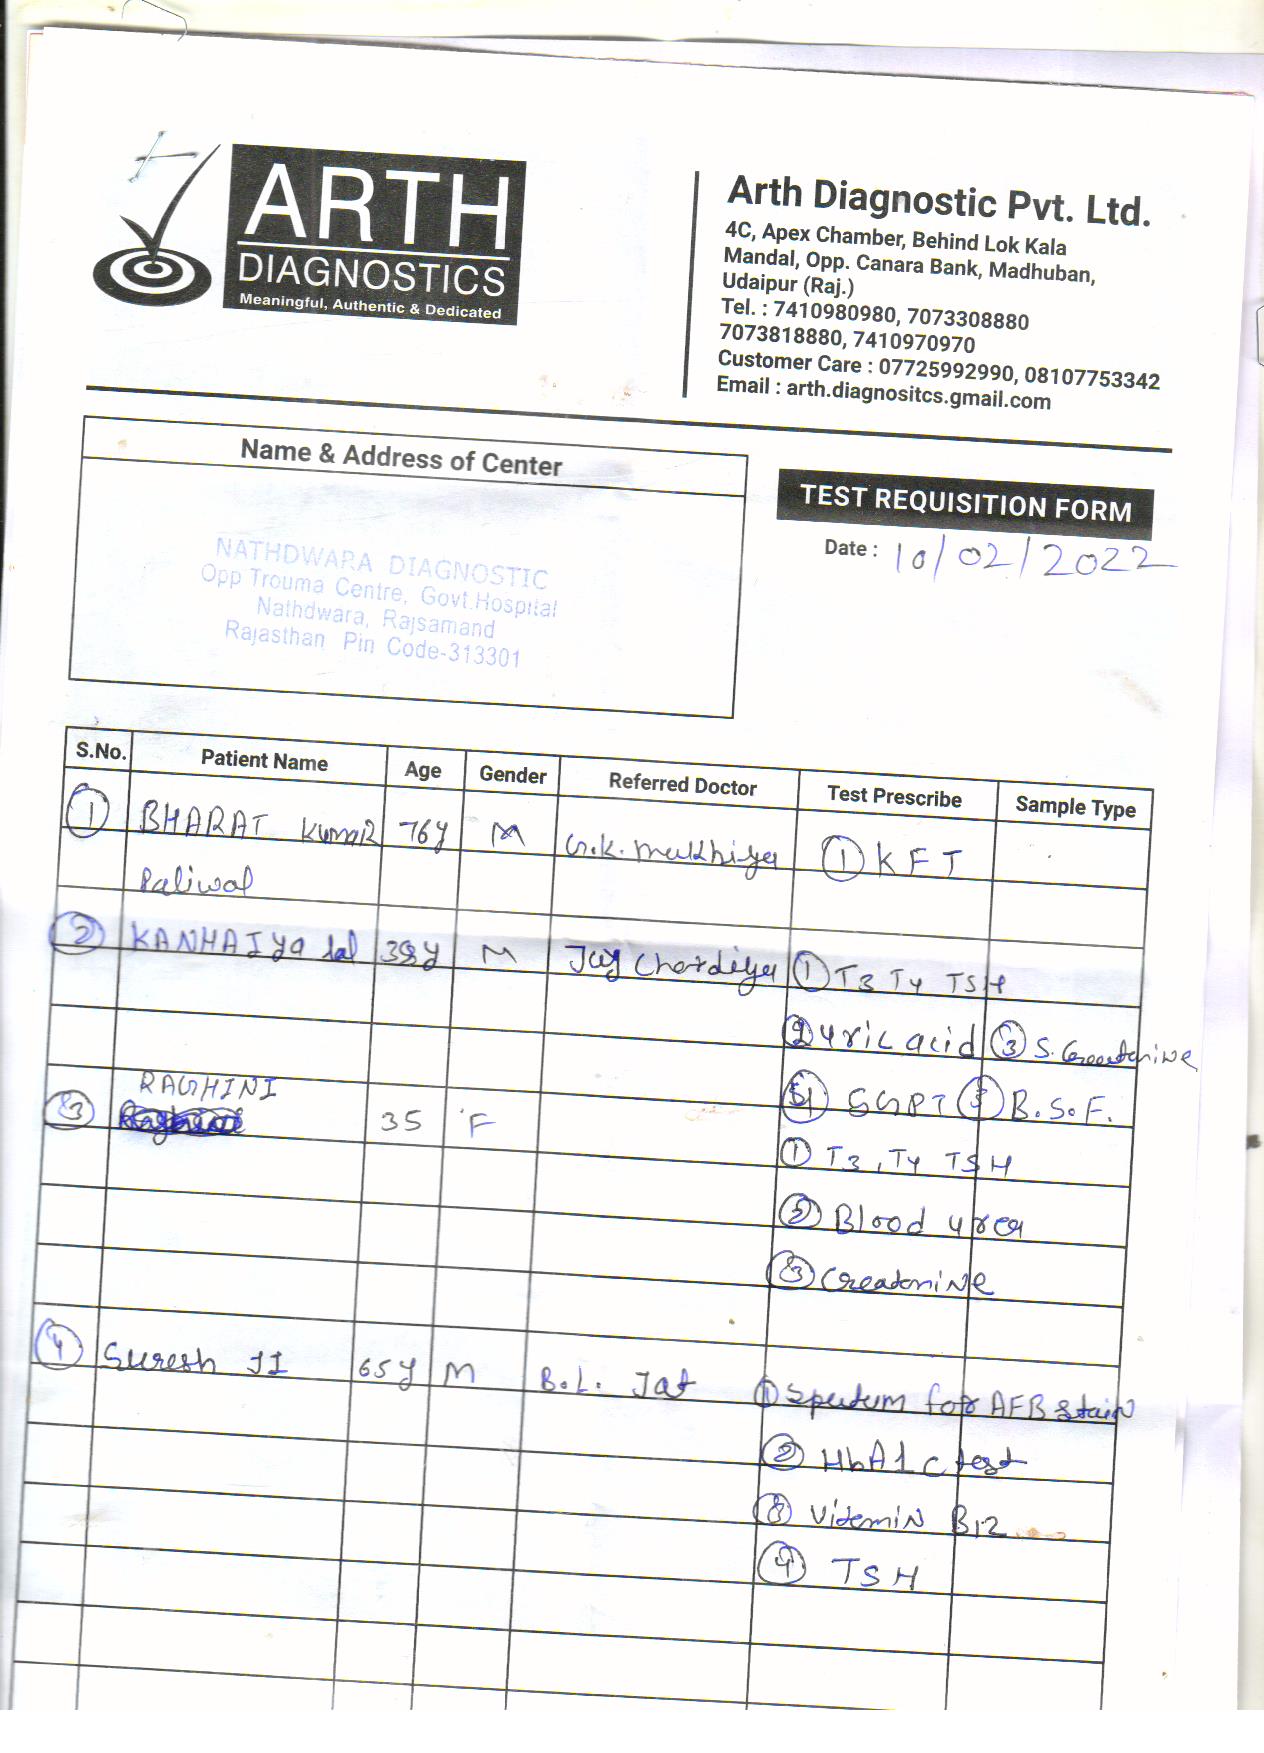 ARTH
DIAGNOSTICS
Meaningful, Authentic & Dedicated
Arth Diagnostic Pvt. Ltd.
4C, Apex Chamber, Behind Lok Kala
Mandal, Opp. Canara Bank, Madhuban,
Udaipur (Raj.)
Tel. : 7410980980, 7073308880
7073818880, 7410970970
Customer Care : 07725992990, 08107753342
Email : arth.diagnositcs.gmail.com
Name & Address of Center
NATHDWARA DIAGNOSTIC
Opp Trouma Centre, Govt.Hospital
Nathdwara, Rajsamand
Rajasthan Pin Code-313301
TEST REQUISITION FORM
Date : 10/02/2022
S.No. Patient Name Age Gender Referred Doctor Test Prescribe Sample Type
1 BHARAT KumaR 76y M G.K. Mukhiya 1 KFT
Paliwal
2 KANHAIya lal 38y M Jay Chordiya 1 T3 T4 TSH
2 uric acid 3 S. Creatanine
4 SGPT 5 B.S.F.
RAGHINI
3 35 F 1 T3, T4 TSH
2 Blood urea
3 CreataniNe
4 Suresh JI 65y M B.L. Jat 1 Sputum for AFB stain
2 HbA1c test
3 VitaminN B12
4 TSH